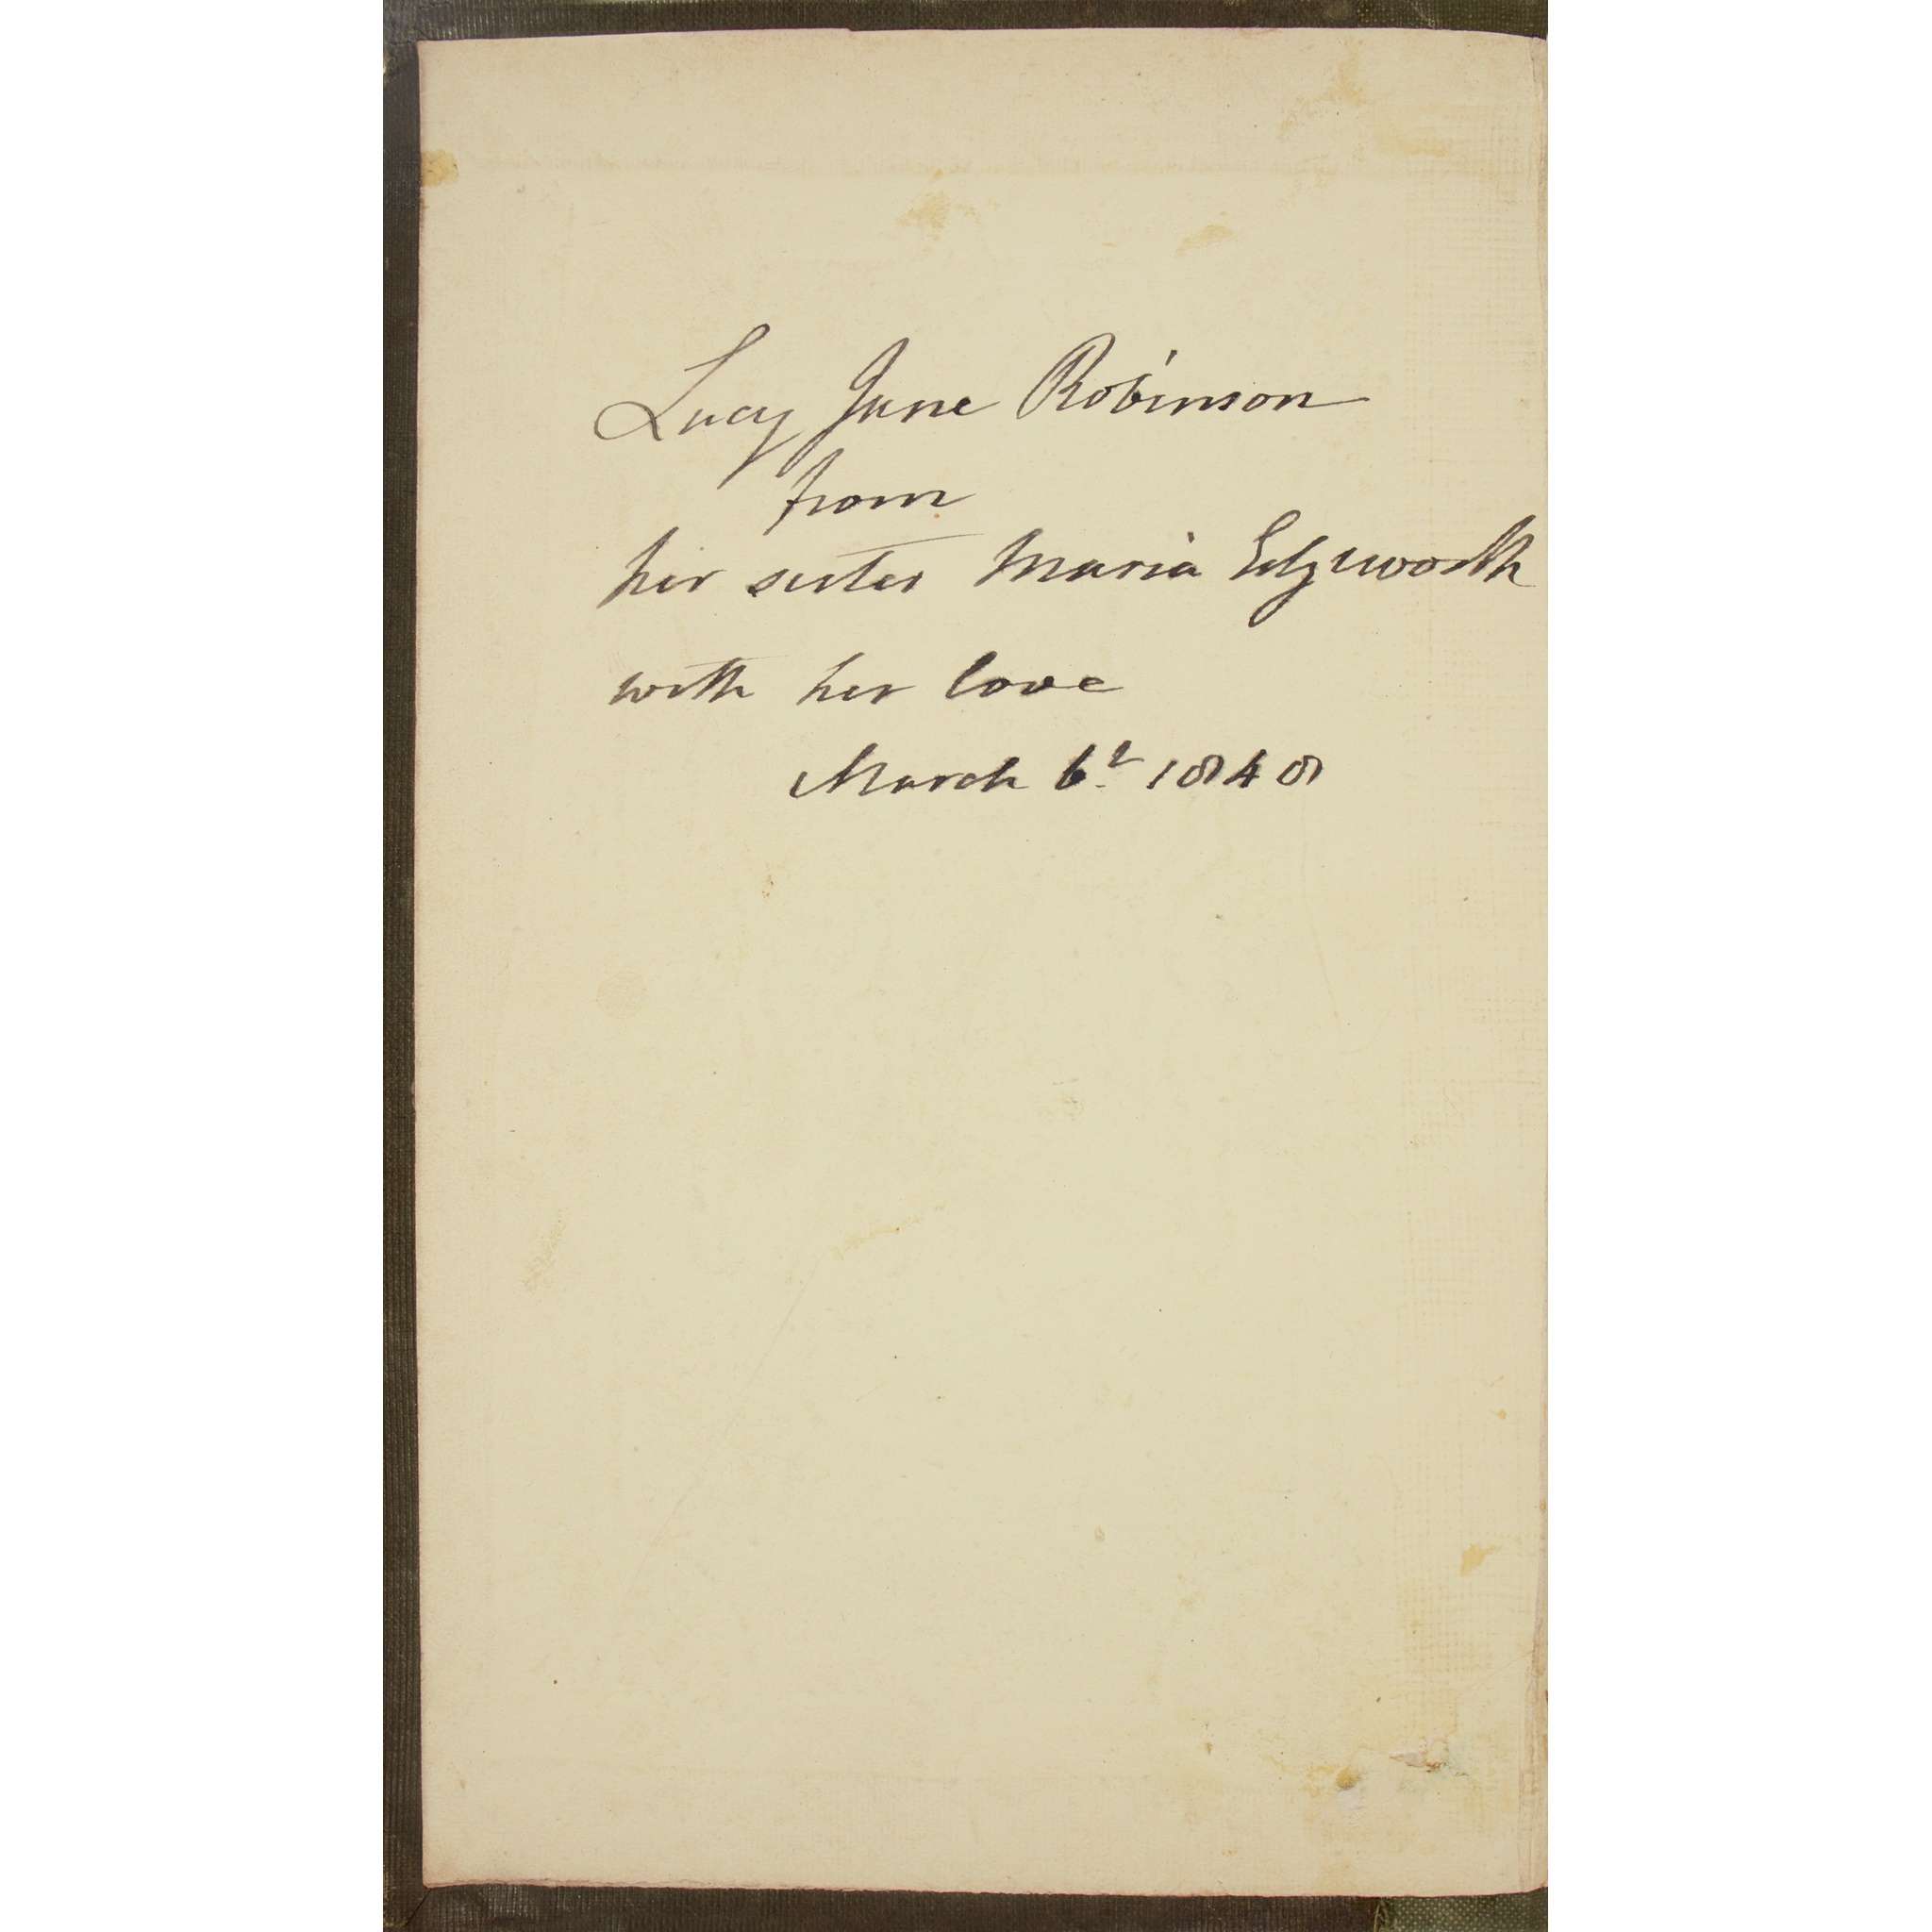 Lucy Jane Robinson
from
her sister Maria Edgeworth
with her love
March 6th 1848